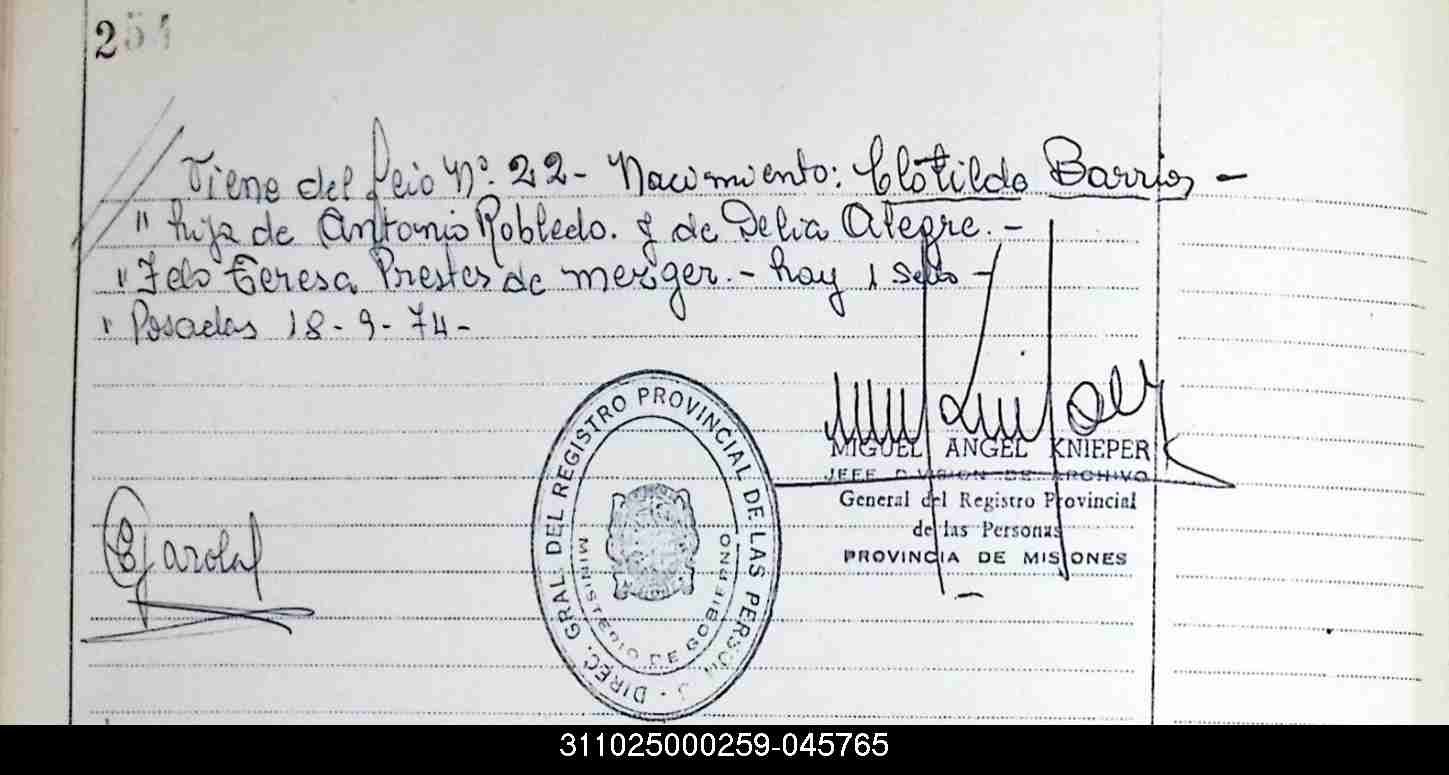 254
Viene del Feio Nº. 22 - Nacimiento: Clotilde Barrios -
" hija de Antonio Robledo. y de Delia Alegre. -
" Fdo Teresa Prestes de merger. - hay 1 sello -
" Posadas 18 - 9 - 74 -
MIGUEL ANGEL KNIEPER
JEFE DIVISION DE ARCHIVO
General del Registro Provincial
de las Personas
PROVINCIA DE MISIONES
DIREC. GRAL. DEL REGISTRO PROVINCIAL DE LAS PERSONAS
MINISTERIO DE GOBIERNO
311025000259-045765